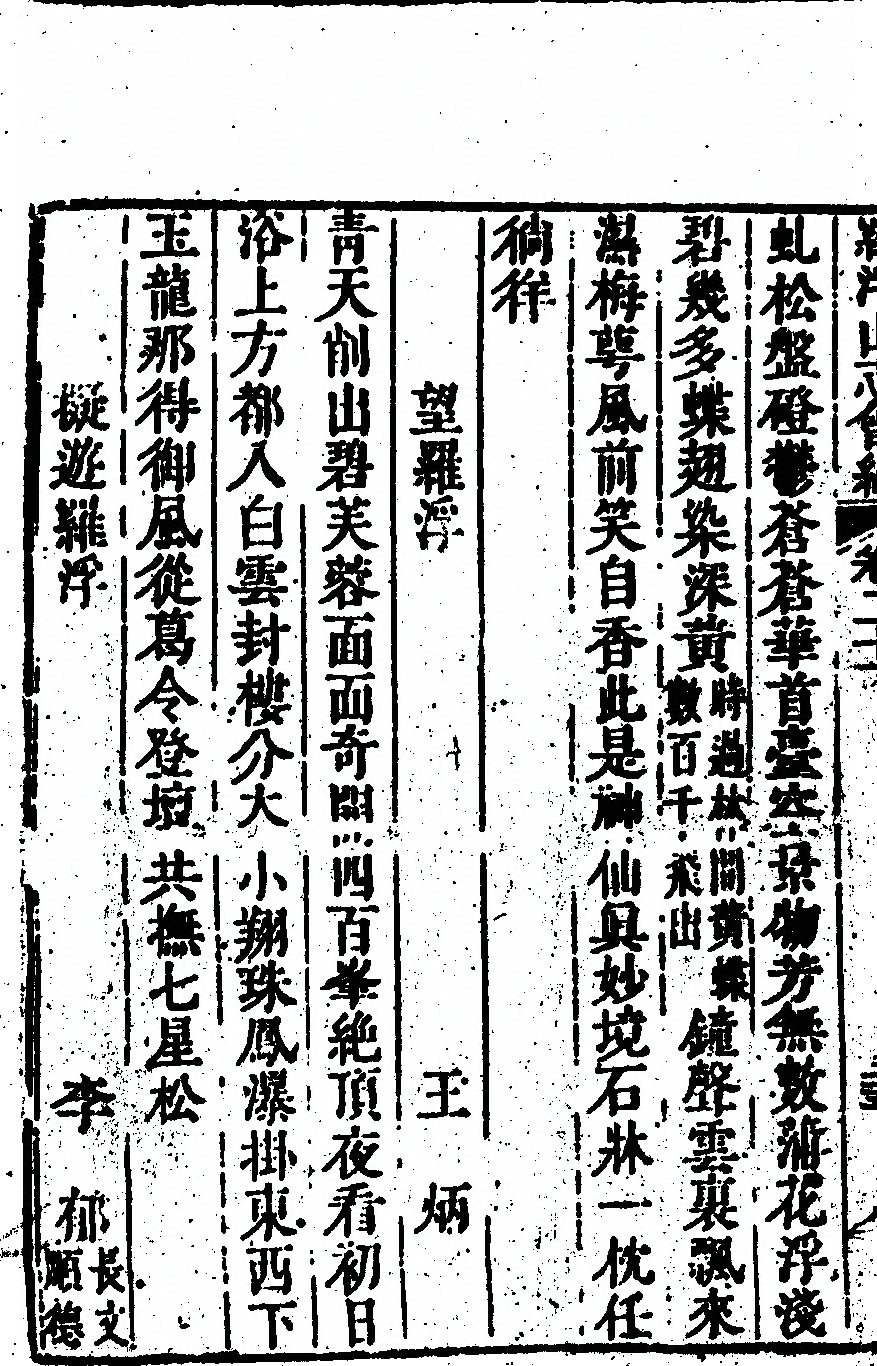 虬松盤磴鬱蒼蒼華首臺空景物芳無數澗花浮淺
碧幾多蝶翅染深黃時過林間黃蝶數百千飛出鐘聲雲裏飄來
梅萼風前笑自香此是神仙真妙境石牀一枕任
徜徉
望羅浮 王炳
青天削出碧芙蓉面面奇開四百峯絶頂夜看初日
浴上方都入白雲封樓分大小翔珠鳳瀑掛東西下
玉龍那得御風從葛令登壇共撫七星松
擬遊羅浮 李郁長文順德